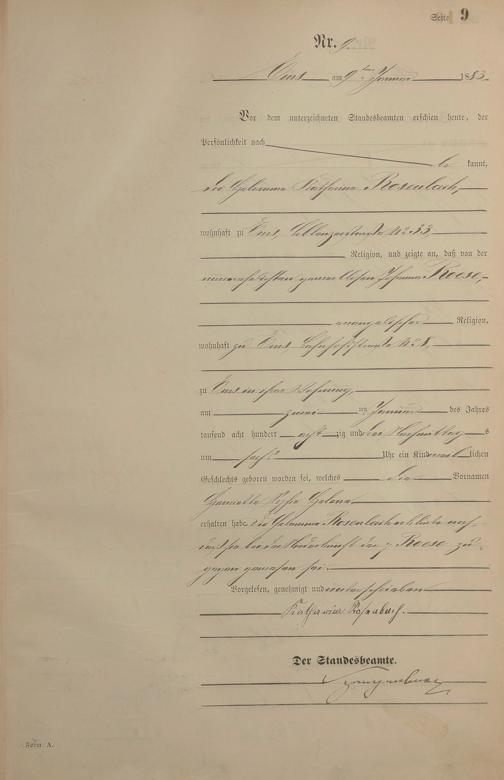 Seite 9
Nr. 9.
Ems am 9ten Januar 1883.
Vor dem unterzeichneten Standesbeamten erschien heute, der
Persönlichkeit nach
be kannt,
die Hebamme Katharina Rosenbach,
wohnhaft zu Ems, Coblenzerstraße No 33,
Religion, und zeigte an, daß von der
unverehelichten Johanna Reese,
evangelischer Religion,
wohnhaft zu Ems, Bahnhofstraße No 8,
zu Ems in ihrer Wohnung,
am zwei ten Januar des Jahres
tausend acht hundert acht zig und drei Nachmittag s
um sechs Uhr ein Kind weib lichen
Geschlechts geboren worden sei, welches die Vornamen
Helena
erhalten habe. Die Hebamme Rosenbach erklärte noch,
daß sie bei der Niederkunft der p. Reese zu-
gegen gewesen sei.
Vorgelesen, genehmigt und unterschrieben
Katharina Rosenbach.
Der Standesbeamte.
Form A.